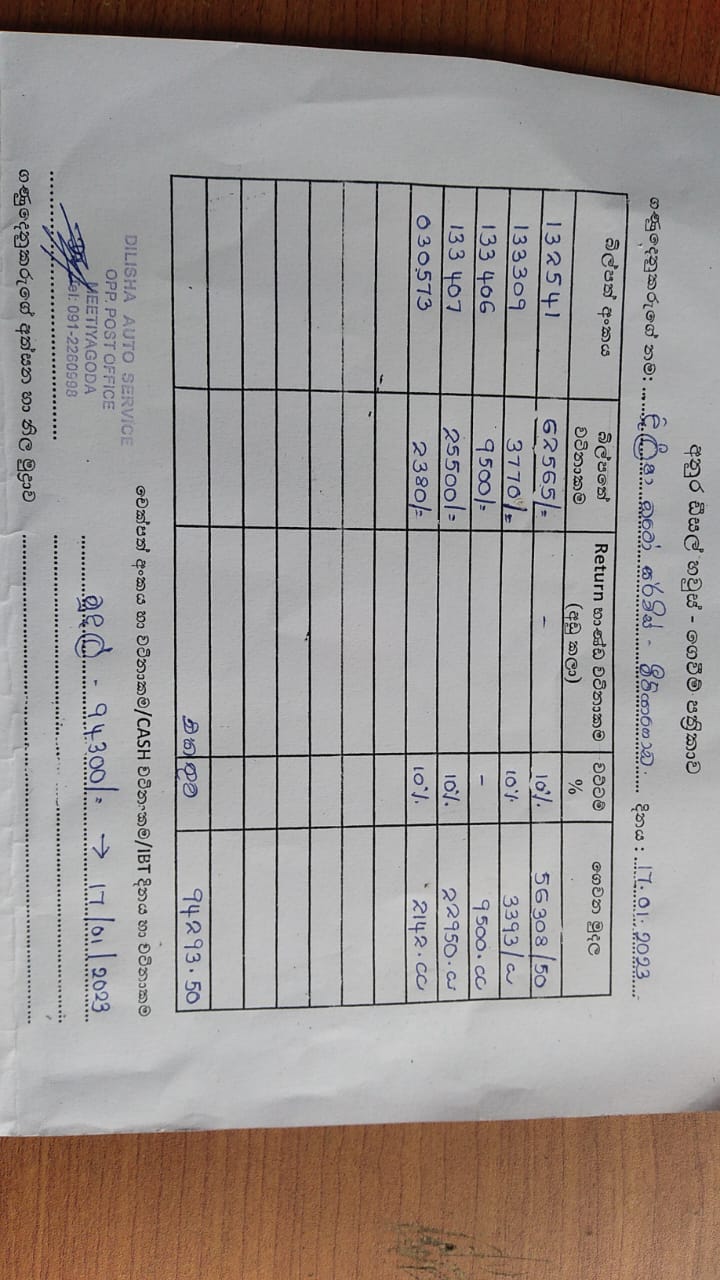 අනුර ඩීසල් හවුස් - ගෙවීම් පත්‍රිකාව
ගණුදෙනුකරුගේ නම: දිලිෂා ඔටෝ සර්විස් - දිනය : 17.01.2023
බිල්පත් අංකය බිල්පතේ වටිනාකම Return භාණ්ඩ වටිනාකම (අඩු කලා) වට්ටම් % ගෙවන මුදල
132541 62565/= - 10% 56308/50
133309 3770/= 10% 3393/
133406 9500/= - 9500.00
133407 25500/= 10% 22950.
030573 2380/= 10% 2142.00
එකතුව 94293.50
චෙක්පත් අංකය හා වටිනාකම/CASH වටිනාකම/IBT දිනය හා වටිනාකම
DILISHA AUTO SERVICE
OPP. POST OFFICE
MEETIYAGODA
Tel: 091-2260998
මුදල් - 94300/= → 17/01/2023
ගණුදෙනුකරුගේ අත්සන හා නිල මුද්‍රාව